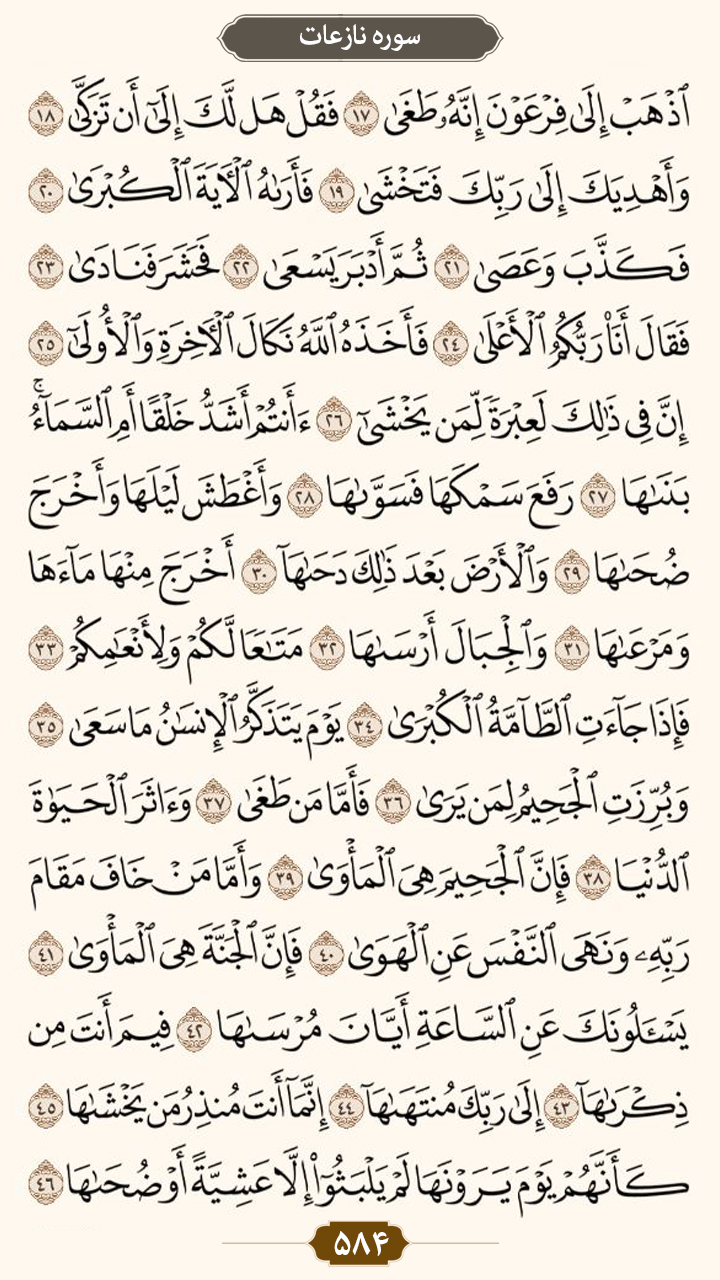 سوره نازعات
ٱذۡهَبۡ إِلَىٰ فِرۡعَوۡنَ إِنَّهُۥ طَغَىٰ ١٧ فَقُلۡ هَل لَّكَ إِلَىٰٓ أَن تَزَكَّىٰ ١٨
وَأَهۡدِيَكَ إِلَىٰ رَبِّكَ فَتَخۡشَىٰ ١٩ فَأَرَىٰهُ ٱلۡأٓيَةَ ٱلۡكُبۡرَىٰ ٢٠
فَكَذَّبَ وَعَصَىٰ ٢١ ثُمَّ أَدۡبَرَ يَسۡعَىٰ ٢٢ فَحَشَرَ فَنَادَىٰ ٢٣
فَقَالَ أَنَا۠ رَبُّكُمُ ٱلۡأَعۡلَىٰ ٢٤ فَأَخَذَهُ ٱللَّهُ نَكَالَ ٱلۡأٓخِرَةِ وَٱلۡأُولَىٰٓ ٢٥
إِنَّ فِي ذَٰلِكَ لَعِبۡرَةٗ لِّمَن يَخۡشَىٰٓ ٢٦ ءَأَنتُمۡ أَشَدُّ خَلۡقًا أَمِ ٱلسَّمَآءُۚ
بَنَىٰهَا ٢٧ رَفَعَ سَمۡكَهَا فَسَوَّىٰهَا ٢٨ وَأَغۡطَشَ لَيۡلَهَا وَأَخۡرَجَ
ضُحَىٰهَا ٢٩ وَٱلۡأَرۡضَ بَعۡدَ ذَٰلِكَ دَحَىٰهَآ ٣٠ أَخۡرَجَ مِنۡهَا مَآءَهَا
وَمَرۡعَىٰهَا ٣١ وَٱلۡجِبَالَ أَرۡسَىٰهَا ٣٢ مَتَٰعٗا لَّكُمۡ وَلِأَنۡعَٰمِكُمۡ ٣٣
فَإِذَا جَآءَتِ ٱلطَّآمَّةُ ٱلۡكُبۡرَىٰ ٣٤ يَوۡمَ يَتَذَكَّرُ ٱلۡإِنسَٰنُ مَا سَعَىٰ ٣٥
وَبُرِّزَتِ ٱلۡجَحِيمُ لِمَن يَرَىٰ ٣٦ فَأَمَّا مَن طَغَىٰ ٣٧ وَءَاثَرَ ٱلۡحَيَوٰةَ
ٱلدُّنۡيَا ٣٨ فَإِنَّ ٱلۡجَحِيمَ هِيَ ٱلۡمَأۡوَىٰ ٣٩ وَأَمَّا مَنۡ خَافَ مَقَامَ
رَبِّهِۦ وَنَهَى ٱلنَّفۡسَ عَنِ ٱلۡهَوَىٰ ٤٠ فَإِنَّ ٱلۡجَنَّةَ هِيَ ٱلۡمَأۡوَىٰ ٤١
يَسۡـَٔلُونَكَ عَنِ ٱلسَّاعَةِ أَيَّانَ مُرۡسَىٰهَا ٤٢ فِيمَ أَنتَ مِن
ذِكۡرَىٰهَآ ٤٣ إِلَىٰ رَبِّكَ مُنتَهَىٰهَآ ٤٤ إِنَّمَآ أَنتَ مُنذِرُ مَن يَخۡشَىٰهَا ٤٥
كَأَنَّهُمۡ يَوۡمَ يَرَوۡنَهَا لَمۡ يَلۡبَثُوٓاْ إِلَّا عَشِيَّةً أَوۡ ضُحَىٰهَا ٤٦
۵۸۴